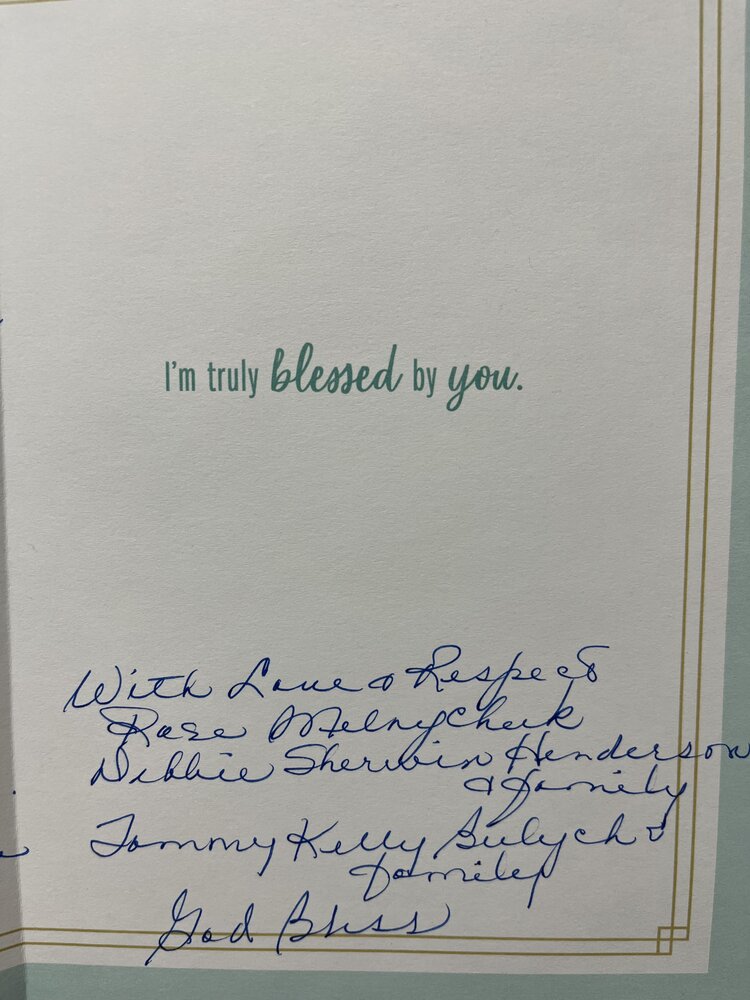 I'm truly blessed by you.
With Love & Respect
Rose Melnycheuk
Debbie Sherwin Henderson
& family
Tommy Kelly Bulych &
family
God Bless